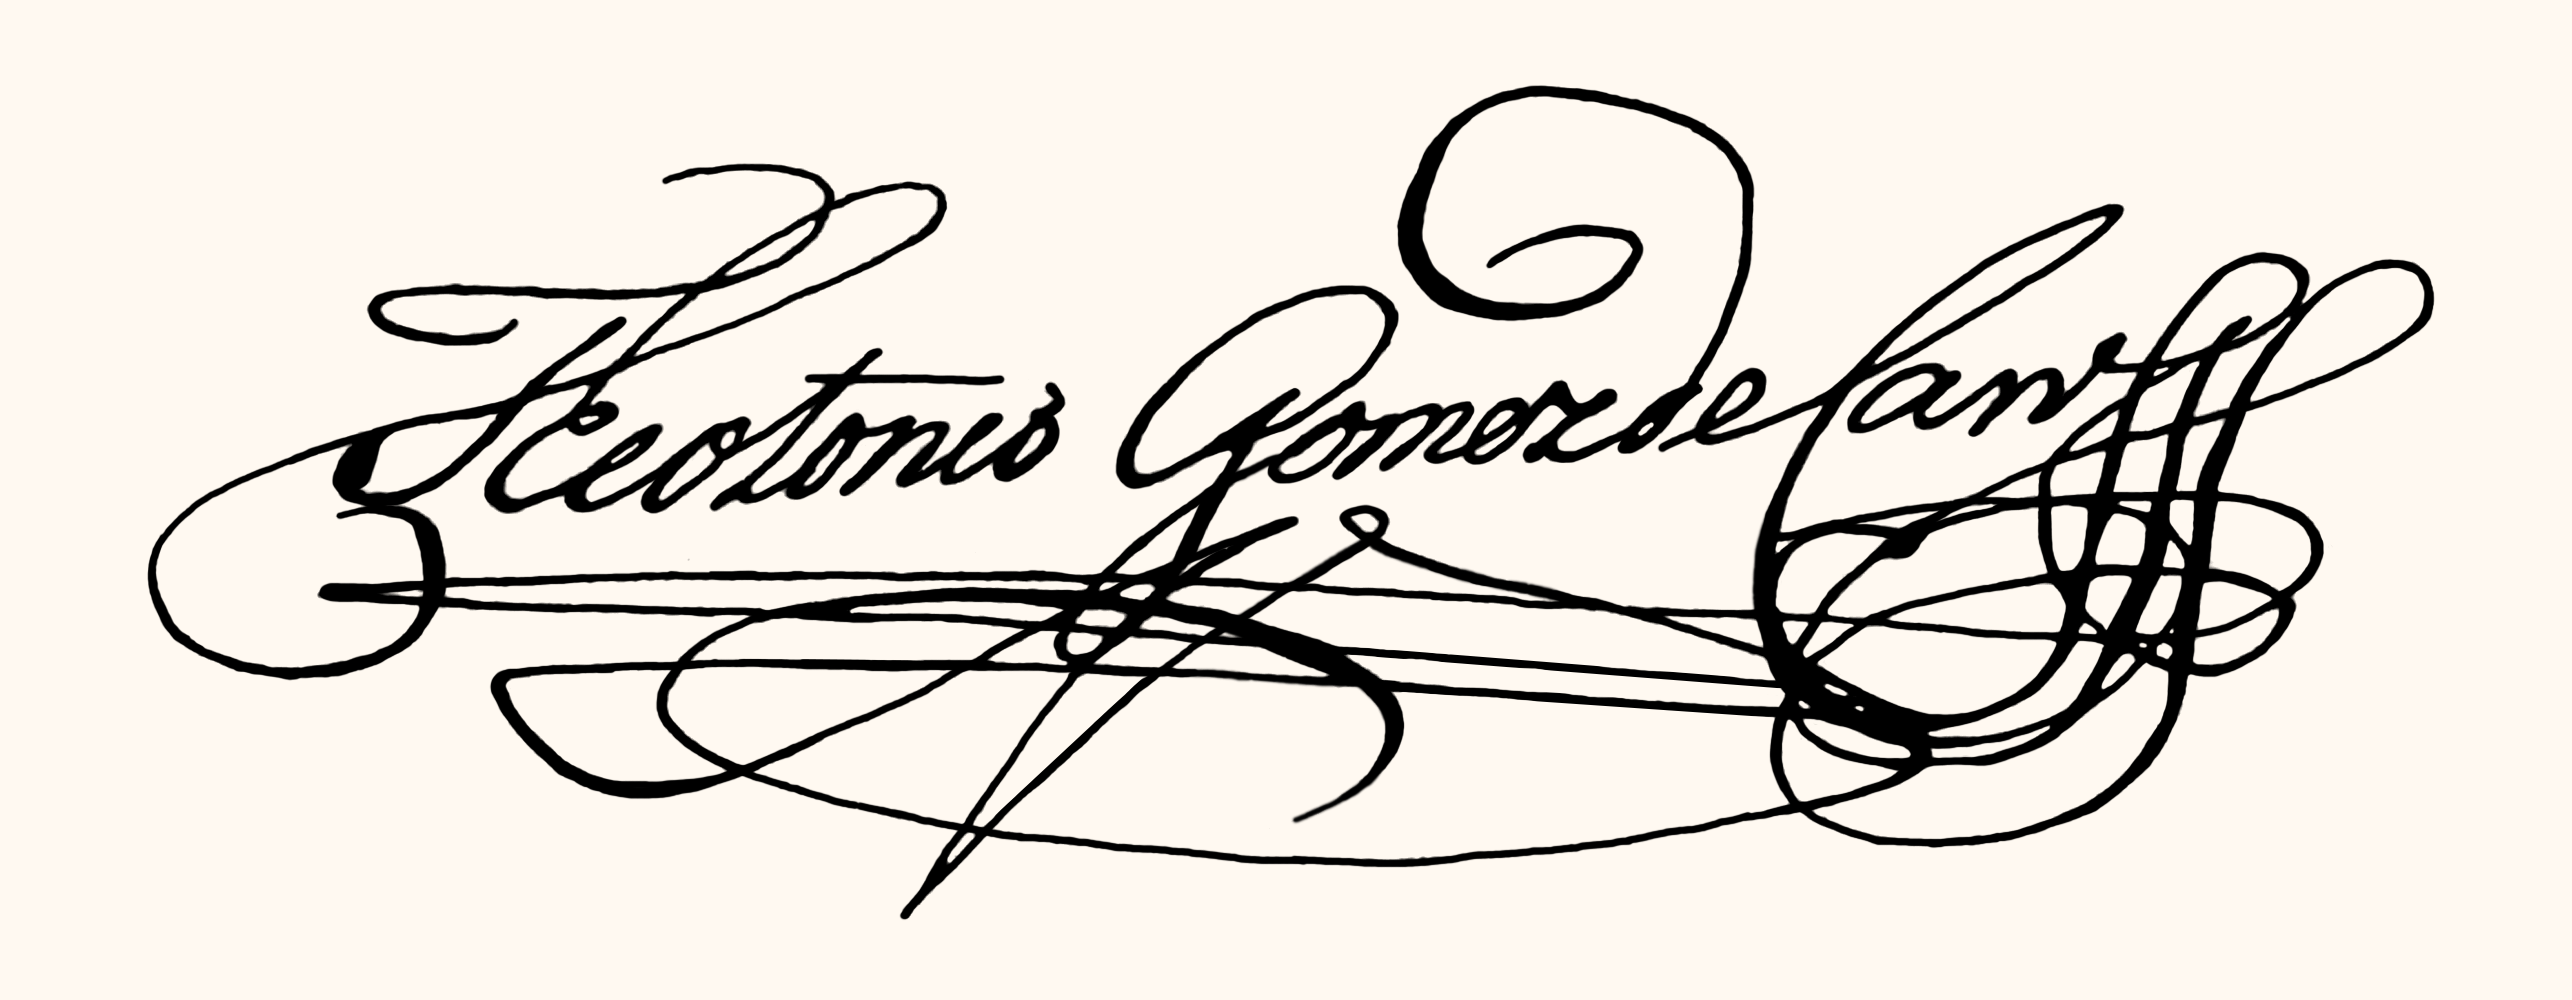 Theotonio Gomez de Carvº